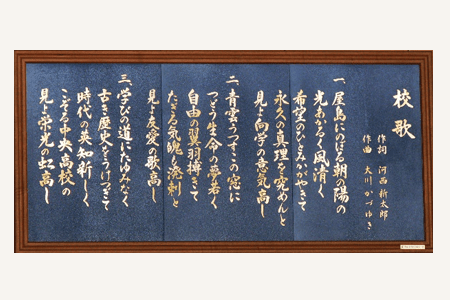 校歌
作詞 河西新太郎
作曲 大川かづゆき
一、屋島にのぼる朝陽の
光あかるく風清く
希望のひとみかがやきて
永久の真理を究めんと
見よ向学の意気高し
二、青雲うつすこの窓に
つどう生命の夢若く
自由の翼羽搏きて
たぎる気魄も溌剌と
見よ友愛の歌高し
三、学びの道にたゆみなく
古き歴史をうけつぎて
時代の英知新しく
こぞる中央高校の
見よ栄光の虹高し